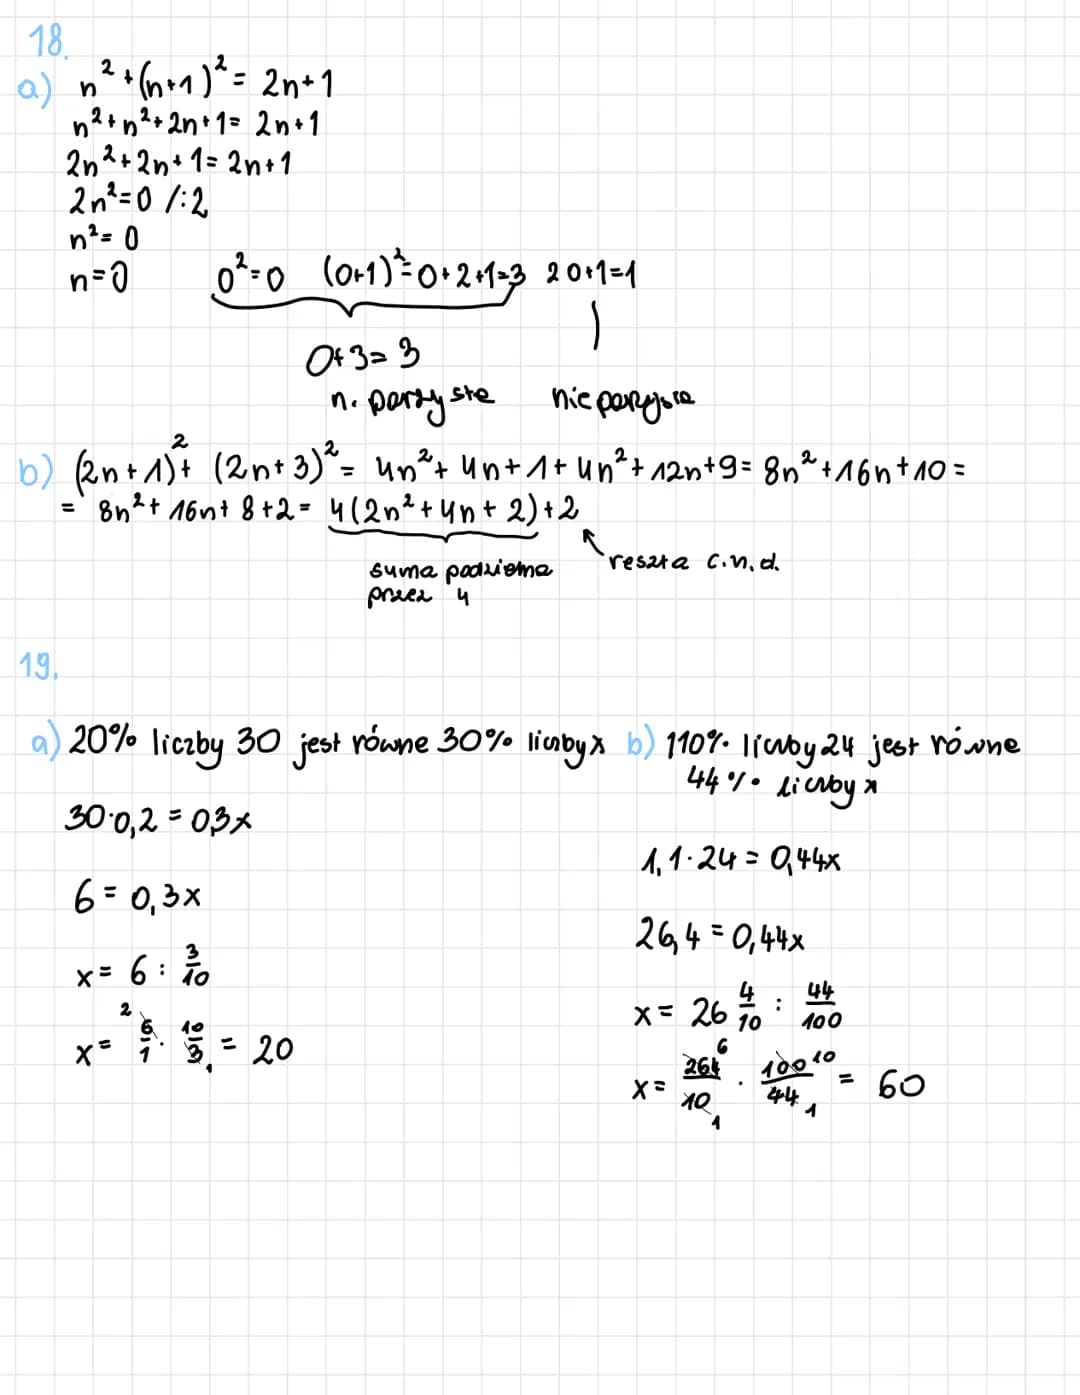 18.
a) n² + (n+1)² = 2n+1
n² + n² + 2n + 1 = 2n+1
2n² + 2n + 1 = 2n+1
2n² = 0 /:2
n² = 0
n = 0 0² = 0 (0+1)² = 0+2+1=3 2 0+1=1
0+3=3
n. parzyste nieparzyste
b) (2n+1)² + (2n+3)² = 4n² + 4n + 1 + 4n² + 12n + 9 = 8n² + 16n + 10 =
= 8n² + 16n + 8 + 2 = 4(2n² + 4n + 2) + 2
reszta c.n.d.
suma podzielna
przez 4
19.
a) 20% liczby 30 jest równe 30% liczby x
30·0,2 = 0,3x
6 = 0,3x
x = 6 : 3/10
x = 6/1 2 · 10/3 1 = 20
b) 110% liczby 24 jest równe
44% liczby x
1,1·24 = 0,44x
26,4 = 0,44x
x = 26 4/10 : 44/100
x = 264 6/10 1 · 100 10/44 1 = 60